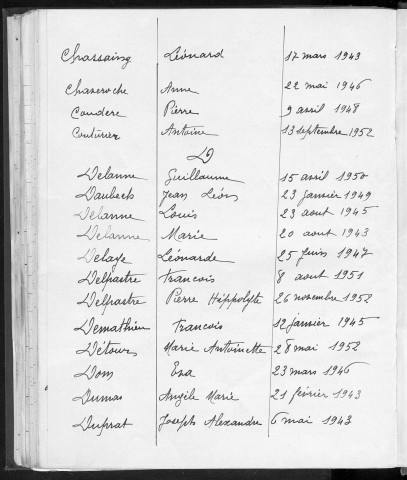 Chassaing Léonard 17 mars 1943
Chazeroche Anne 22 mai 1946
Couderc Pierre 9 avril 1948
Couturier Antoine 13 septembre 1952
D
Delanne Guillaume 15 avril 1950
Daubech Jean Léon 23 janvier 1949
Delanne Louis 23 aout 1945
Delanne Marie 20 aout 1943
Delage Léonarde 25 juin 1947
Delpastre Francois 8 aout 1951
Delpastre Pierre Hippolyte 26 novembre 1952
Demathieu Francois 12 janvier 1945
Détours Marie Antoinette 28 mai 1952
Dom 23 mars 1946
Dumas Angèle Marie 21 février 1943
Duprat Joseph Alexandre 6 mai 1943